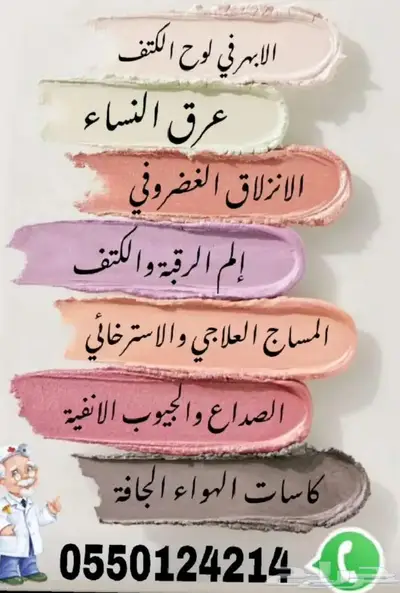 الابهر في لوح الكتف
عرق النساء
الانزلاق الغضروفي
إلم الرقبة والكتف
المساج العلاجي والاسترخائي
الصداع والجيوب الانفية
كاسات الهواء الجافة
0550124214